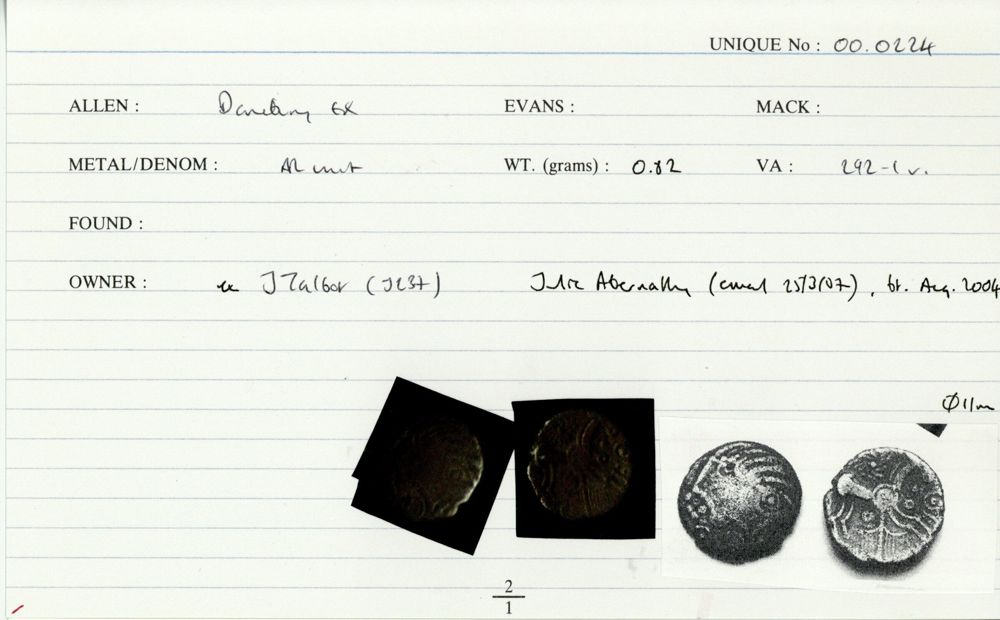 UNIQUE No : 00.0224
ALLEN : Danebury EX EVANS : MACK :
METAL/DENOM : AR unit WT. (grams) : 0.82 VA : 292-1 v.
FOUND :
OWNER : ex J Talbot (JE37) Julie Abernathy (email 25/3/07), bt. Aug. 2004
Ø 11m
2
1